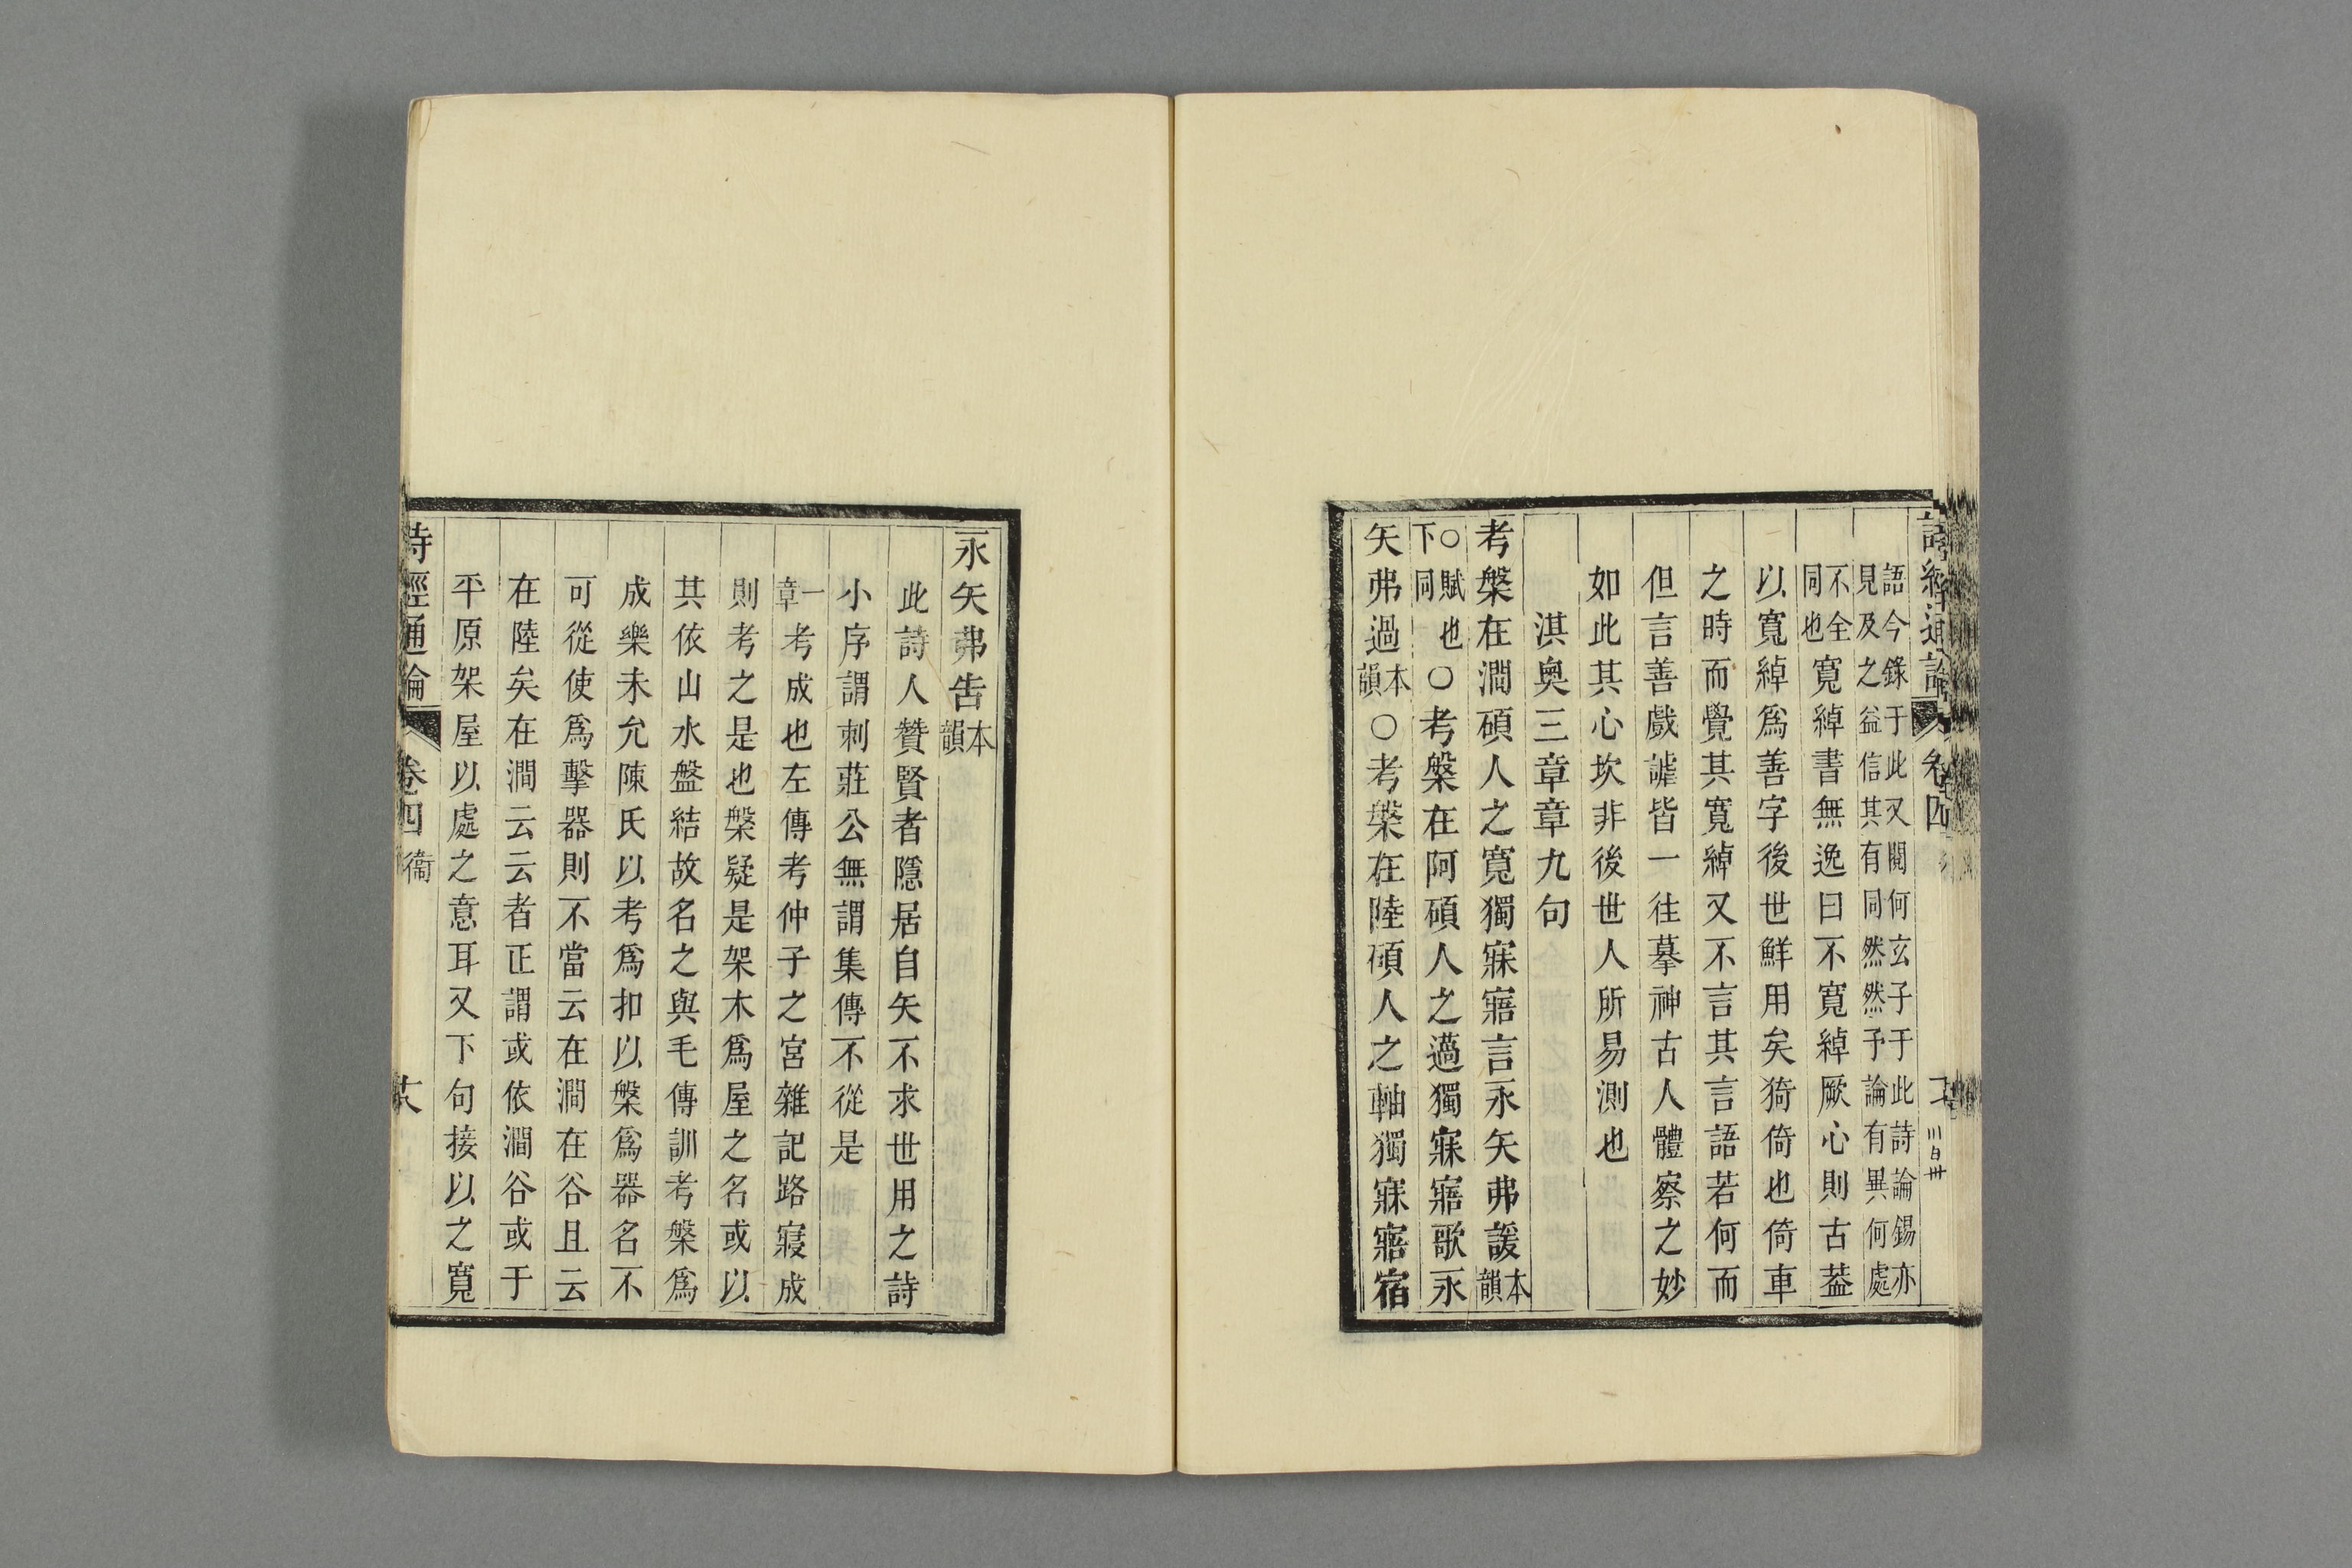 詩經通論 卷四
語今錄于此又閱何玄子于此詩論錫亦
見及之益信其有同然然予論有異何處
不全
同也寬綽書無逸曰不寬綽厥心則古葢
以寬綽爲善字後世鮮用矣猗倚也倚車
之時而覺其寬綽又不言其言語若何而
但言善戲謔皆一往摹神古人體察之妙
如此其心坎非後世人所易測也
淇奧三章章九句
考槃在澗碩人之寬獨寐寤言永矢弗諼本韻
○賦也
下同○考槃在阿碩人之薖獨寐寤歌永
矢弗過本韻○考槃在陸碩人之軸獨寐寤宿
永矢弗告本韻
此詩人贊賢者隱居自矢不求世用之詩
小序謂刺莊公無謂集傳不從是
一章考成也左傳考仲子之宮雜記路寢成
則考之是也槃疑是架木爲屋之名或以
其依山水盤結故名之與毛傳訓考槃爲
成樂未允陳氏以考爲扣以槃爲器名不
可從使爲擊器則不當云在澗在谷且云
在陸矣在澗云云者正謂或依澗谷或于
平原架屋以處之意耳又下句接以之寬
詩經通論 卷四 衞